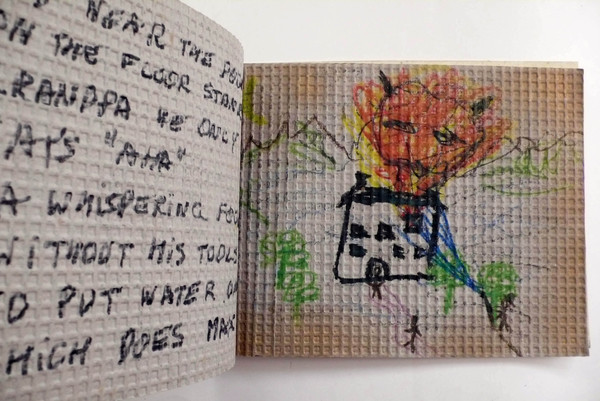 NEAR THE
ON THE FLOOR
GRANDPA HE ONLY
SAYS "AHA"
A WHISPERING
WITHOUT HIS TOOLS
TO PUT WATER
WHICH DOES